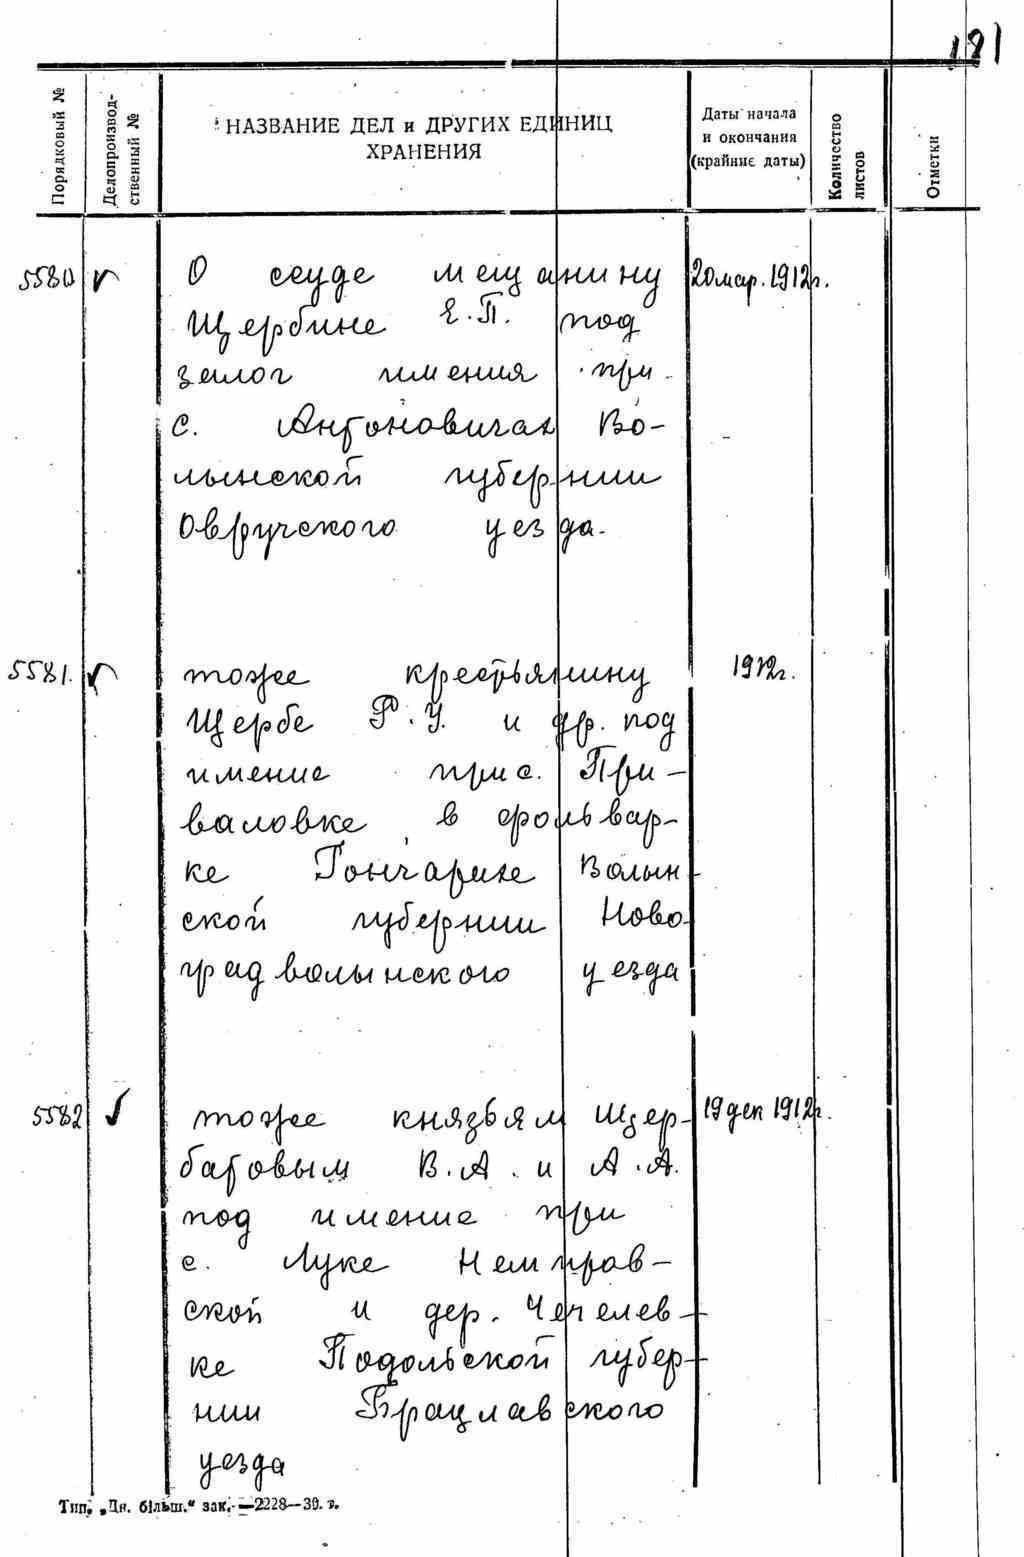 181
Порядковый №
Делопроизвод-
ственный №
НАЗВАНИЕ ДЕЛ и ДРУГИХ ЕДИНИЦ
ХРАНЕНИЯ
Даты начала
и окончания
(крайние даты)
Количество
листов
Отметки
5580 О ссуде мещанину 20 мар. 1912 г.
Щербине Е.П. под
залог имения при
с. Антоновичах Во-
лынской губернии
Овручского уезда.
5581. тоже крестьянину 1912 г.
Щербе Р.У. и др. под
имение при с. При-
валовке, в фольвар-
ке Гончарихе Волын-
ской губернии Ново-
градволынского уезда
5582 тоже князьям Щер- 19 дек 1912 г.
батовым В.А. и А.А.
под имение при
с. Луке Немиров
ской и дер. Чечелев-
ке Подольской губер-
нии Брацлавского
уезда
Тип. „Дн. більш.“ зак. —2228—39. г.